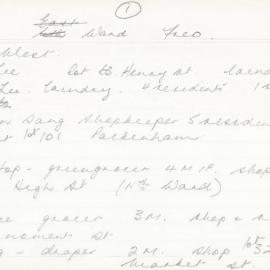 ①
East
Ward Freo.
West
Lee lot 63 Henry St laundry
Lee. Laundry. 4 residents 1 s
Dang Shopkeeper 5 residen
lot 101 Packenham
Hop - greengrocer 4 M 1 F. shop
High St (Nth Ward)
ee grocer 3 M. shop &
nament St
g - draper 2 M. shop lot 32
Market St.